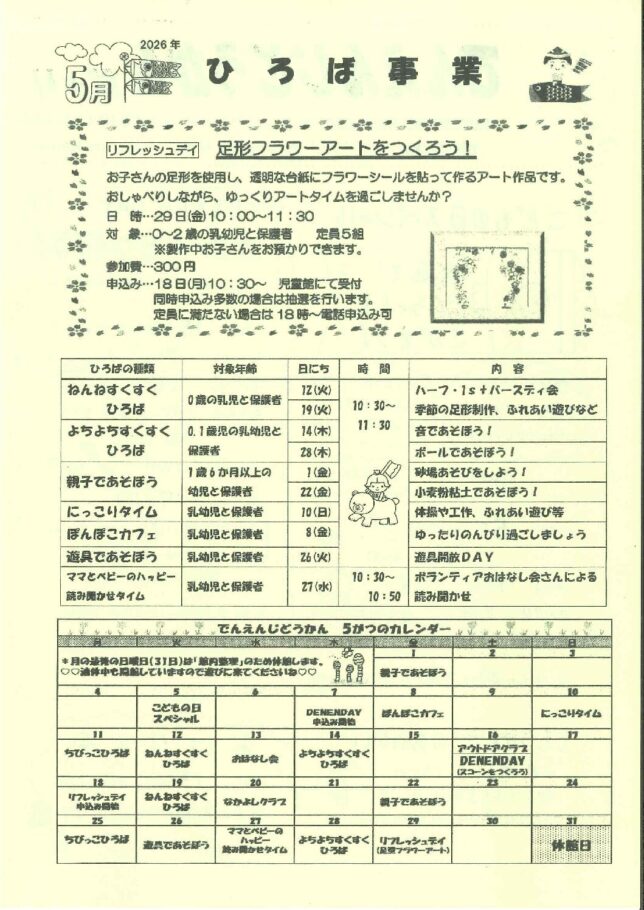 2026年
5月
ひろば事業
リフレッシュデイ 足形フラワーアートをつくろう！
お子さんの足形を使用し、透明な台紙にフラワーシールを貼って作るアート作品です。
おしゃべりしながら、ゆっくりアートタイムを過ごしませんか？
日 時…29日(金)10：00～11：30
対 象…0～2歳の乳幼児と保護者 定員5組
※製作中お子さんをお預かりできます。
参加費…300円
申込み…18日(月)10：30～ 児童館にて受付
同時申込み多数の場合は抽選を行います。
定員に満たない場合は18時～電話申込み可
ひろばの種類 対象年齢 日にち 時 間 内 容
ねんねすくすくひろば 0歳の乳児と保護者 12(火) 10：30～11：30 ハーフ・1stバースディ会
19(火) 季節の足形制作、ふれあい遊びなど
よちよちすくすくひろば 0.1歳児の乳幼児と保護者 14(木) 音であそぼう！
28(木) ボールであそぼう！
親子であそぼう 1歳6か月以上の幼児と保護者 1(金) 砂場あそびをしよう！
22(金) 小麦粉粘土であそぼう！
にっこりタイム 乳幼児と保護者 10(日) 体操や工作、ふれあい遊び等
ぽんぽこカフェ 乳幼児と保護者 8(金) ゆったりのんびり過ごしましょう
遊具であそぼう 乳幼児と保護者 26(火) 遊具開放DAY
ママとベビーのハッピー読み聞かせタイム 乳幼児と保護者 27(水) 10：30～10：50 ボランティアおはなし会さんによる読み聞かせ
でんえんじどうかん 5がつのカレンダー
月 火 水 木 金 土 日
＊月の最後の日曜日(31日)は「館内整理」のため休館します。
1 2 3
親子であそぼう
4 5 6 7 8 9 10
こどもの日スペシャル DENENDAY申込み開始 ぽんぽこカフェ にっこりタイム
11 12 13 14 15 16 17
ちびっこひろば ねんねすくすくひろば おはなし会 よちよちすくすくひろば アウトドアクラブ DENENDAY (スコーンをつくろう)
18 19 20 21 22 23 24
リフレッシュデイ申込み開始 ねんねすくすくひろば なかよしクラブ 親子であそぼう
25 26 27 28 29 30 31
ちびっこひろば 遊具であそぼう ママとベビーのハッピー読み聞かせタイム よちよちすくすくひろば リフレッシュデイ(足形フラワーアート) 休館日